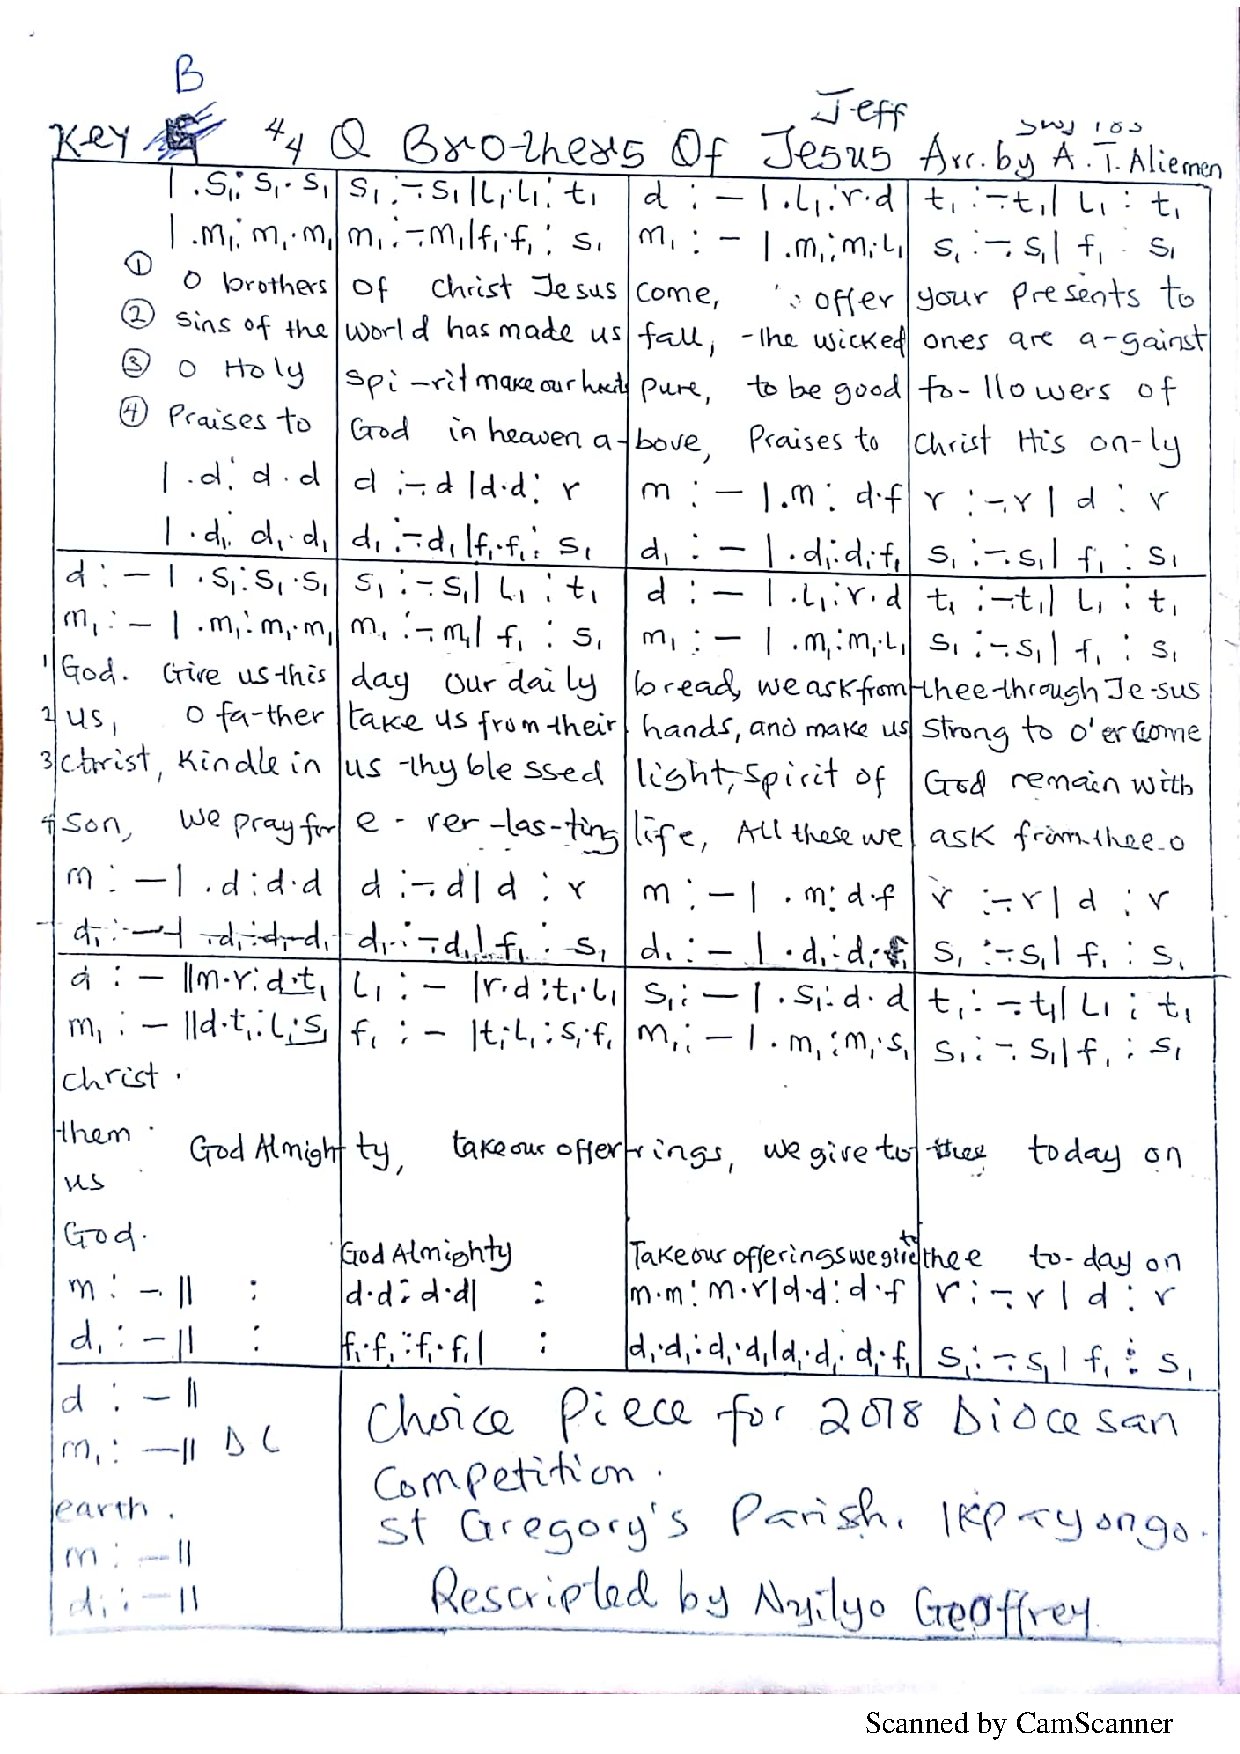 B
Jeff
Key 4/4 O Brothers Of Jesus Arr. by A. T. Aliemen
| .s₁: s₁. s₁ | s₁ :-. s₁|l₁.l₁: t₁ | d : - |.l₁:r.d | t₁ :-. t₁| l₁ : t₁
| .m₁: m₁. m₁ | m₁ :-. m₁|f₁.f₁: s₁ | m₁ : - |.m₁:m₁.l₁ | s₁ :-. s₁| f₁ : s₁
① O brothers | of Christ Jesus | come, offer | your presents to
② sins of the | world has made us | fall, the wicked | ones are a-gainst
③ O Holy | spi-rit make our hearts | pure, to be good | fo-llowers of
④ Praises to | God in heaven a- | bove, Praises to | Christ His on-ly
| .d: d.d | d :-. d |d.d: r | m : - |.m: d.f | r :-. r | d : r
| .d₁: d₁.d₁ | d₁ :-. d₁|f₁.f₁: s₁ | d₁ : - |.d₁:d₁.f₁ | s₁ :-. s₁| f₁ : s₁
d : - | .s₁:s₁.s₁ | s₁ :-. s₁| l₁ : t₁ | d : - |.l₁:r.d | t₁ :-. t₁| l₁ : t₁
m₁ : - | .m₁:m₁.m₁ | m₁ :-. m₁| f₁ : s₁ | m₁ : - |.m₁:m₁.l₁ | s₁ :-. s₁| f₁ : s₁
1 God. Give us this | day our daily | bread, we ask from | thee through Je-sus
2 us, O fa-ther | take us from their | hands, and make us | strong to o'er come
3 Christ, Kindle in | us thy blessed | light, spirit of | God remain with
4 Son, we pray for | e-ver-las-ting | life, All these we | ask from thee O
m : - | .d:d.d | d :-. d| d : r | m : - | .m: d.f | r :-. r | d : r
d₁ : - | .d₁:d₁.d₁ | d₁ :-. d₁| f₁ : s₁ | d₁ : - | .d₁:d₁.f₁ | s₁ :-. s₁| f₁ : s₁
d : - ||m.r:d.t₁ | l₁ : - |r.d:t₁.l₁ | s₁ : - | .s₁:d.d | t₁ :-. t₁| l₁ : t₁
m₁ : - ||d.t₁:l₁.s₁ | f₁ : - |t₁.l₁:s₁.f₁ | m₁ : - | .m₁:m₁.s₁ | s₁ :-. s₁| f₁ : s₁
Christ.
them. God Almigh | ty, take our offe | rings, we give to | thee today on
us
God. | God Almighty | Take our offerings we give to | thee to-day on
m : - || : | d.d:d.d| : | m.m:m.r|d.d:d.f | r :-. r | d : r
d₁ : - || : | f₁.f₁:f₁.f₁| : | d₁.d₁:d₁.d₁|d₁.d₁:d₁.f₁ | s₁ :-. s₁ | f₁ : s₁
d : - ||
m₁ : - || DC
earth.
m : - ||
d₁ : - ||
Choice Piece for 2018 Diocesan
Competition.
St Gregory's Parish. Ikpayongo.
Rescripted by Nyilyo Geoffrey
Scanned by CamScanner